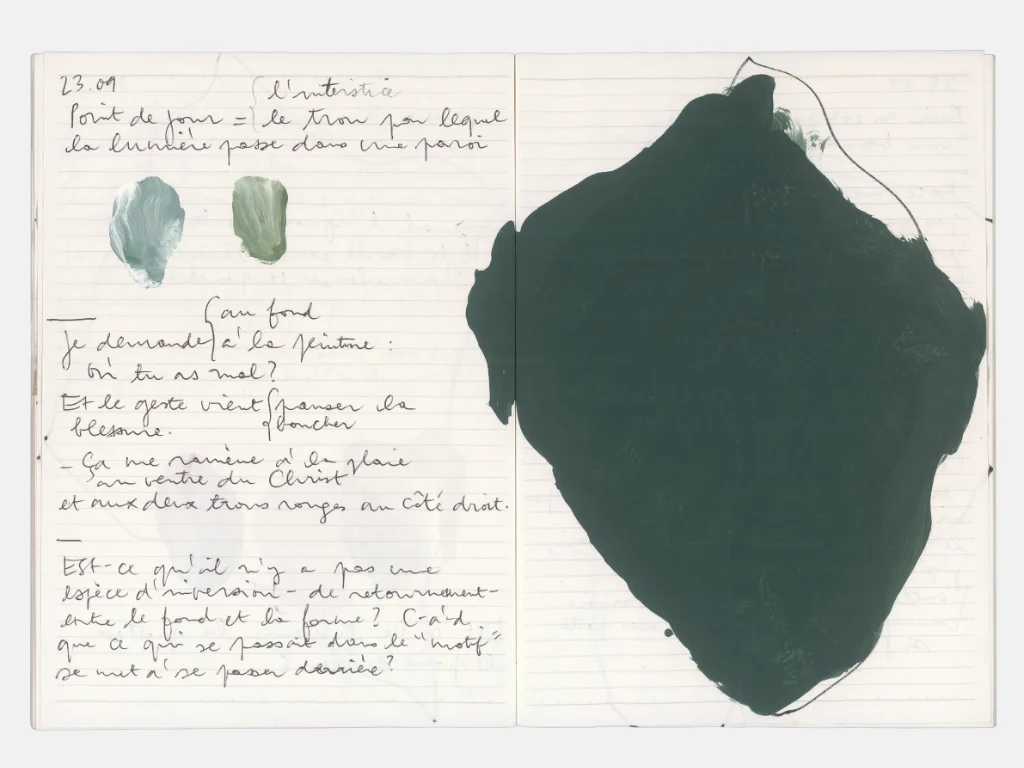 23.09
{ l'interstice
Point de jour = { le trou par lequel
la lumière passe dans une paroi
{ au fond
Je demande } à la peinture :
Où tu as mal ?
Et le geste vient { panser la
blessure. { boucher
– Ça me ramène à la plaie
au ventre du Christ
et aux deux trous rouges au côté droit.
Est-ce qu'il n'y a pas une
espèce d'inversion – de retournement –
entre le fond et la forme ? C-à-d
que ce qui se passait dans le "motif"
se met à se passer derrière ?